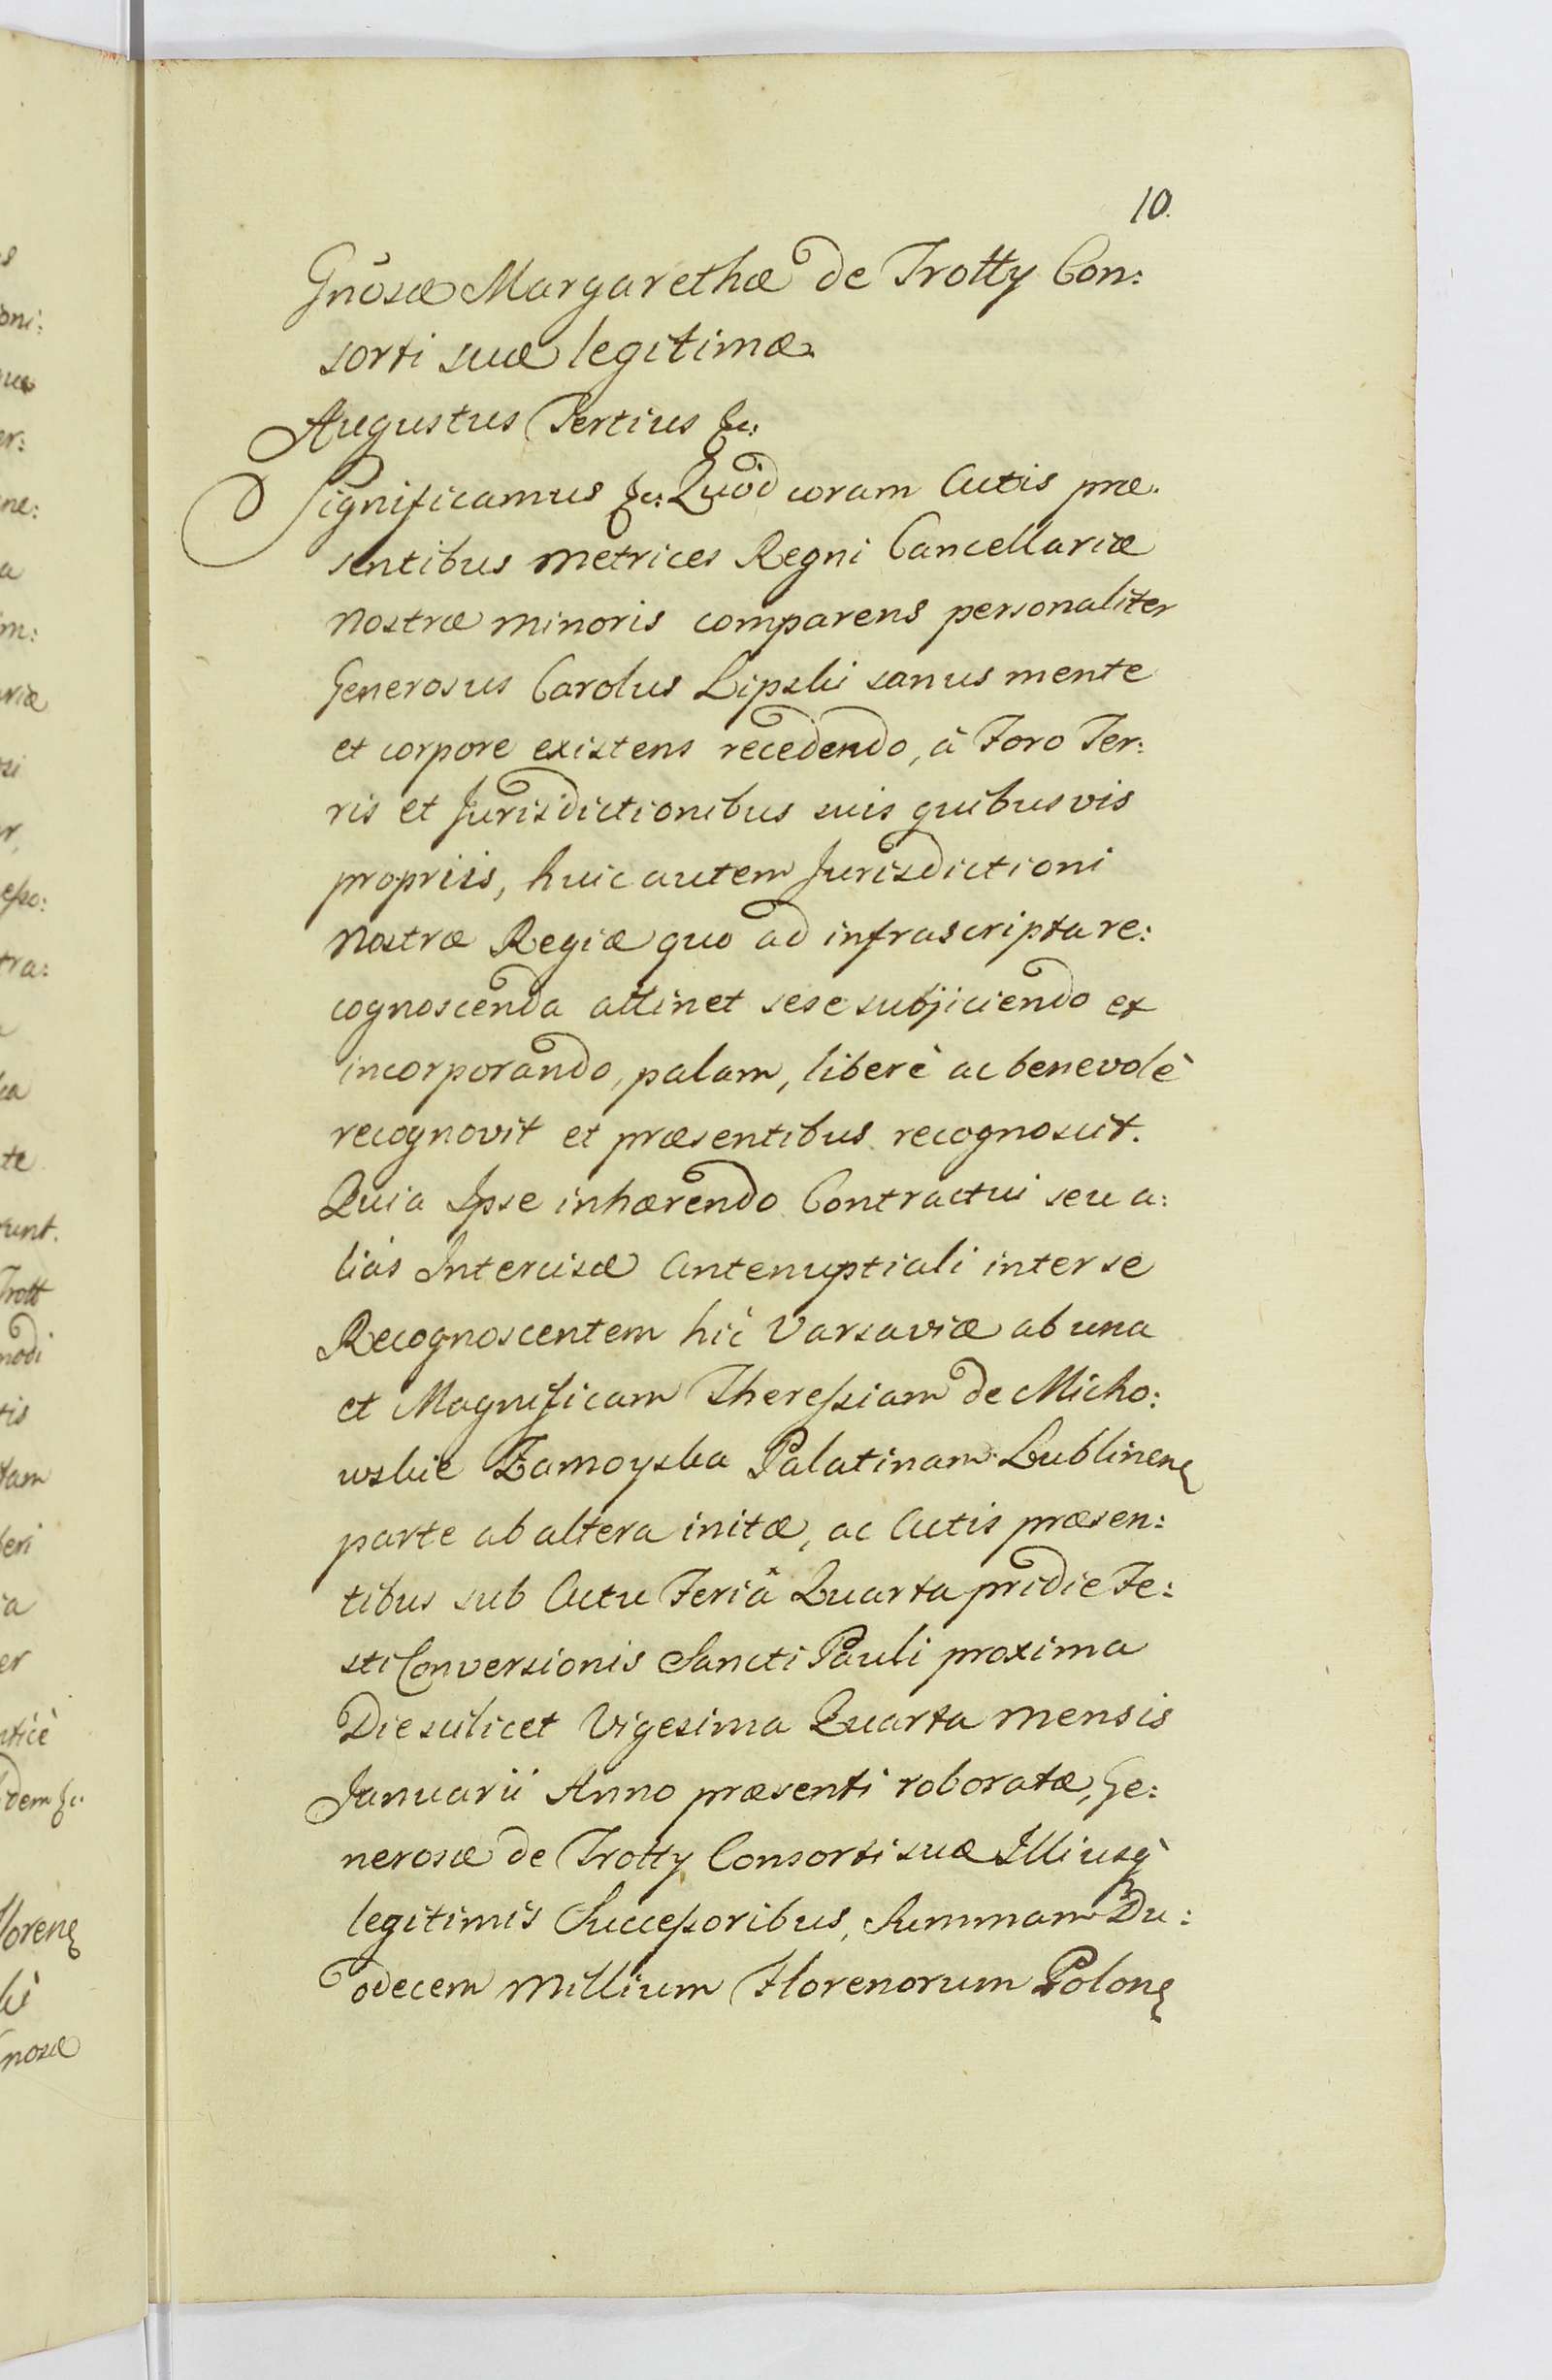 10.
Gnõsæ Margarethæ de Trotty Con:
sorti suæ legitimæ.
Augustus Tertius &c:
Significamus &c: Quòd coram Actis præ:
sentibus Metrices Regni Cancellariæ
Nostræ minoris comparens personaliter
Generosus Carolus Lipski sanus mente
et corpore existens recedendo, à Foro Ter:
ris et Jurisdictionibus suis quibusvis
propriis, huic autem Jurisdictioni
Nostræ Regiæ quo ad infrascripta re:
cognoscenda attinet sese subjiciendo et
incorporando, palam, liberè ac benevolè
recognovit et præsentibus recognoscit.
Quia Ipse inhærendo Contractui seu a:
liàs Intercisæ Antenuptiali inter se
Recognoscentem hìc Varsaviæ ab una
et Magnificam Theressiam de Micho:
wskie Zamoyska Palatinam Lublinen
parte ab altera initæ, ac Actis præsen:
tibus sub Actu Feriâ Quarta pridie Fe:
sti Conversionis Sancti Pauli proxima
Die scilicet Vigesima Quarta Mensis
Januarii Anno præsenti roboratæ, Ge:
nerosæ de Trotty Consorti suæ Illiusq̀
legitimis Successoribus, Summam Du:
odecem Millium Florenorum Polon